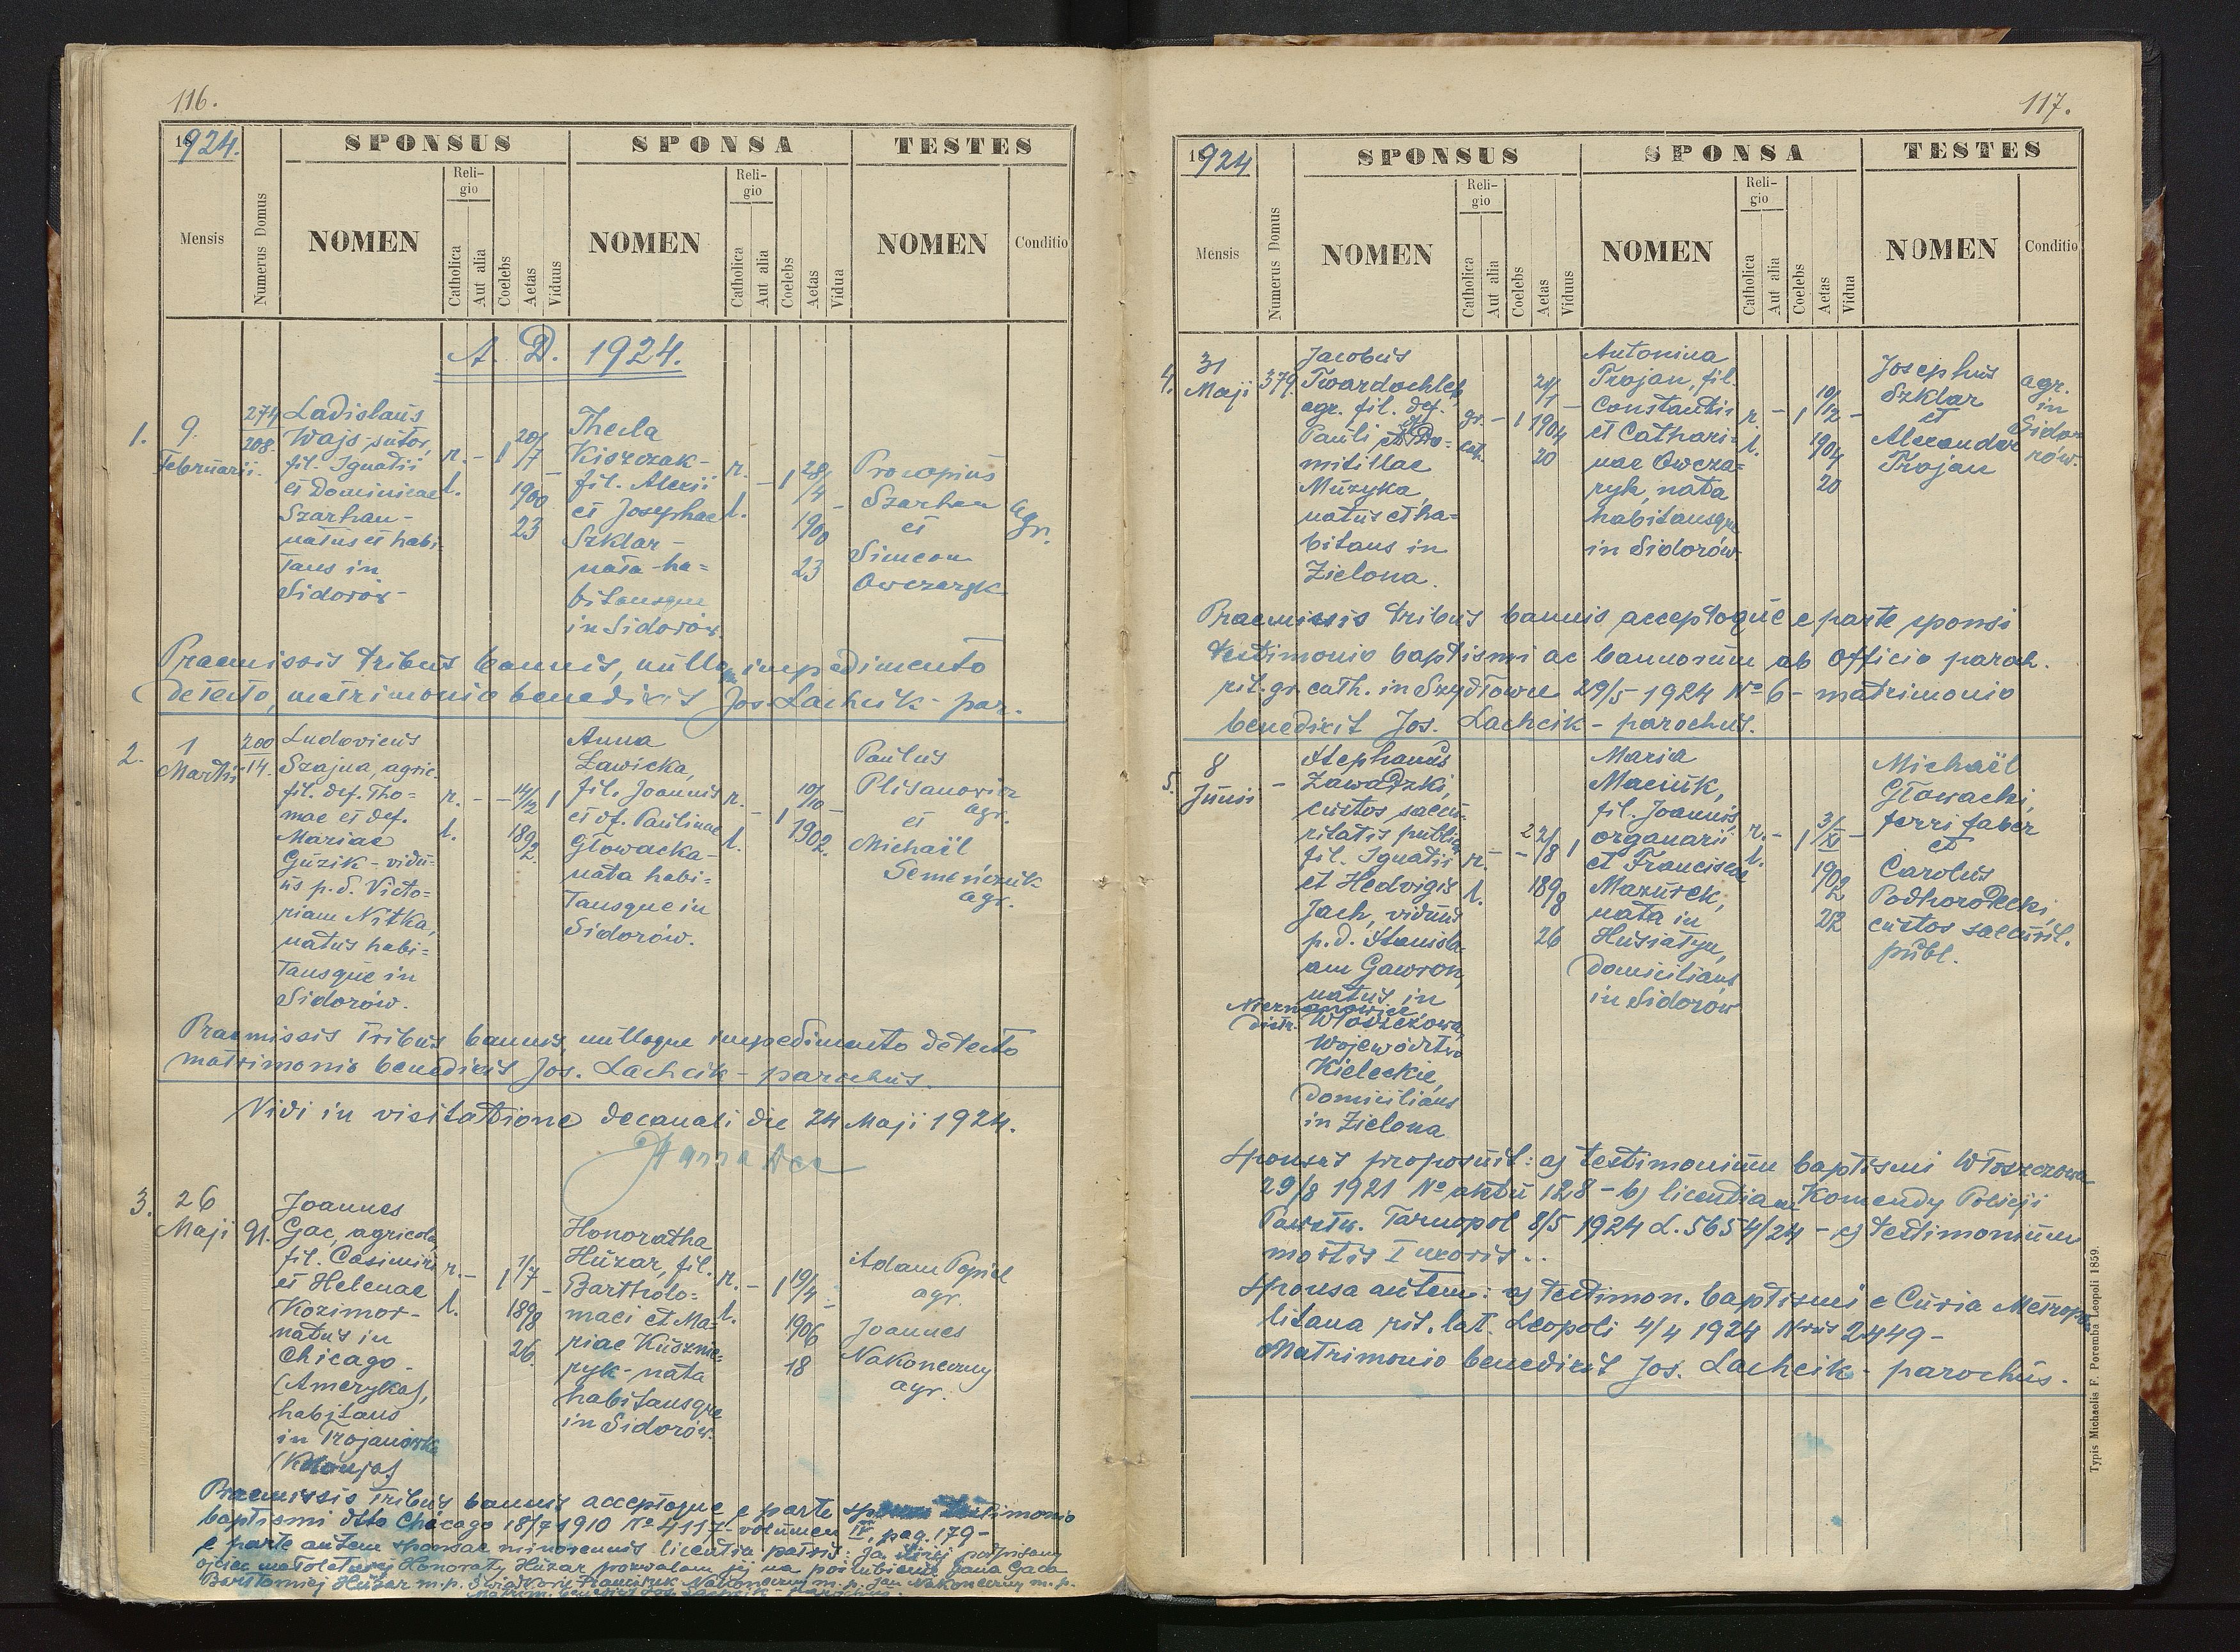 116.
1924.
SPONSUS
SPONSA
TESTES
Mensis
Numerus Domus
NOMEN
Reli-
gio
Catholica
Aut alia
Coelebs
Aetas
Viduus
NOMEN
Reli-
gio
Catholica
Aut alia
Coelebs
Aetas
Vidua
NOMEN
Conditio
A. D. 1924.
1.
9.
Februarii.
274
208.
Ladislaus
Wajs, sutor,
fil. Ignatii
et Dominicae
Szarhan-
natus et habi-
tans in
Sidorów-
r. - 1
l.
20/7
1900
23
-
Thecla
Kiszczak-
fil. Alexii
et Josephae
Szklar-
nata-ha=
bitansque
in Sidorów.
r.
l.
- 1
28/4
1900
23
-
Procopius
Szarhan
et
Simeon
Owczaryk
agr.
Praemissis tribus bannis, nullo impedimento
detecto, matrimonio benedixit Jos. Lachcik- par.
2.
1
Martii
200
14.
Ludovicus
Szajna, agric.
fil. def. Tho=
mae et def.
Mariae
Guzik - vidu=
us p. d. Victo=
riam Nitka,
natus habi=
tansque in
Sidorów.
r. - -
l.
14/12
1892.
1
Anna
Ławicka,
fil. Joannis
et df. Paulinae
Głowacka-
nata habi=
tansque in
Sidorów.
r.
l.
- 1
10/10
1902.
Paulus
Plisanowicz
agr.
et
Michaël
Semeńczuk
agr.
Praemissis tribus bannis, nulloque impedimento detecto
matrimonio benedixit Jos. Lachcik - parochus.
Vidi in visitatione decanali die 24 Maji 1924.
3.
26
Maji
91.
Joannes
Gac, agricola
fil. Casimiri
et Helenae
Kozimor-
natus in
Chicago-
(Ameryka),
habitans
in Trojanówka
(Kolonja)
r. - 1
l.
1/7
1898
26.
-
Honoratha
Huzar, fil.
Bartholo=
maei et Ma=
riae Kusznie=
ryk - nata
habitansque
in Sidorów.
r. - 1
l.
19/4
1906
18
-
Adam Popiel
agr.
Joannes
Nakoneczny
agr.
Praemissis tribus bannis acceptoque e parte sponsi testimonio
baptismi dtto Chicago 18/7 1910 No 4117- volumen IV, pag. 179-
e parte autem sponsae minorennis licentia patris: Ja niżej podpisany
ojciec małoletniej Honoraty Huzar pozwalam jej na poślubienie Jana Gaca
Bartłomiej Huzar m. p. Świadkowie Franciszek Nakoneczny m. p. Jan Nakoneczny m. p.
Matrim. benedixit Jos. Lachcik - parochus.
117.
1924
SPONSUS
SPONSA
TESTES
Mensis
Numerus Domus
NOMEN
Reli-
gio
Catholica
Aut alia
Coelebs
Aetas
Viduus
NOMEN
Reli-
gio
Catholica
Aut alia
Coelebs
Aetas
Vidua
NOMEN
Conditio
4.
31
Maji
379.
Jacobus
Twardochleb
agr. fil. def.
Pauli et Do=
mitillae
Muzyka,
natus et ha=
bitans in
Zielona.
gr. - 1
cat.
24/1
1904
20
-
Antonina
Trojan, fil.
Constantis
et Cathari=
nae Owcza=
ryk, nata
habitansque
in Sidorów-
r. - 1
l.
10/12
1904
20
-
Josephus
Szklar
et
Alexander
Trojan
agr.
in
Sido=
rów.
Praemissis tribus bannis acceptoque e parte sponsi
testimonio baptismi ac bannorum ab Officio paroch.
rit. gr. cath. in Szydłowce 29/5 1924 No 6 - matrimonio
benedixit Jos. Lachcik - parochus.
5.
8
Junii
-
Stephanus
Zawadzki,
custos secu=
ritatis public.
fil. Ignatii
et Hedvigis
Jach, viduus
p. d. Stanisla
am Gawron,
natus in
Nieznanowice
distr. Włoszczowa,
Województwo
Kieleckie,
domicilians
in Zielona
r. - -
l.
22/8
1898
26
1
Maria
Maciuk,
fil. Joannis,
organarii
et Franciscae
Mazurek,
nata in
Husiatyn,
domicilians
in Sidorów
r. - 1
l.
3/XI
1902
22
-
Michaël
Głowacki,
ferri faber
et
Carolus
Podhorodecki,
custos securit.
publ.
Sponsus proposuit: a) testimonium baptismi Włoszczowa
29/8 1921 No aktu 128 - b) licentiam Komendy Policji
Państw. Tarnopol 8/5 1924 L. 5654/24 - c) testimonium
mortis I uxoris..
Sponsa autem: a) testimon. baptismi e Curia Metropo
litana rit. lat. Leopoli 4/4 1924 Nrus 2449-
Matrimonio benedixit Jos. Lachcik - parochus.
Typis Michaelis F. Poremba Leopoli 1859.